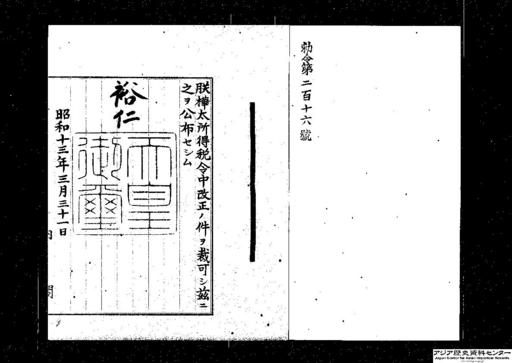 勅令第二百十六號
朕樺太所得税令中改正ノ件ヲ裁可シ茲ニ
之ヲ公布セシム
裕仁
天皇
御璽
昭和十三年三月三十一日
内閣
アジア歴史資料センター
Japan Center for Asian Historical Records